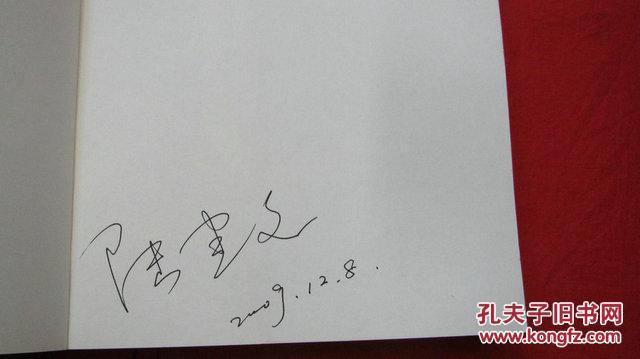 2009.12.8.
孔夫子旧书网
www.kongfz.com